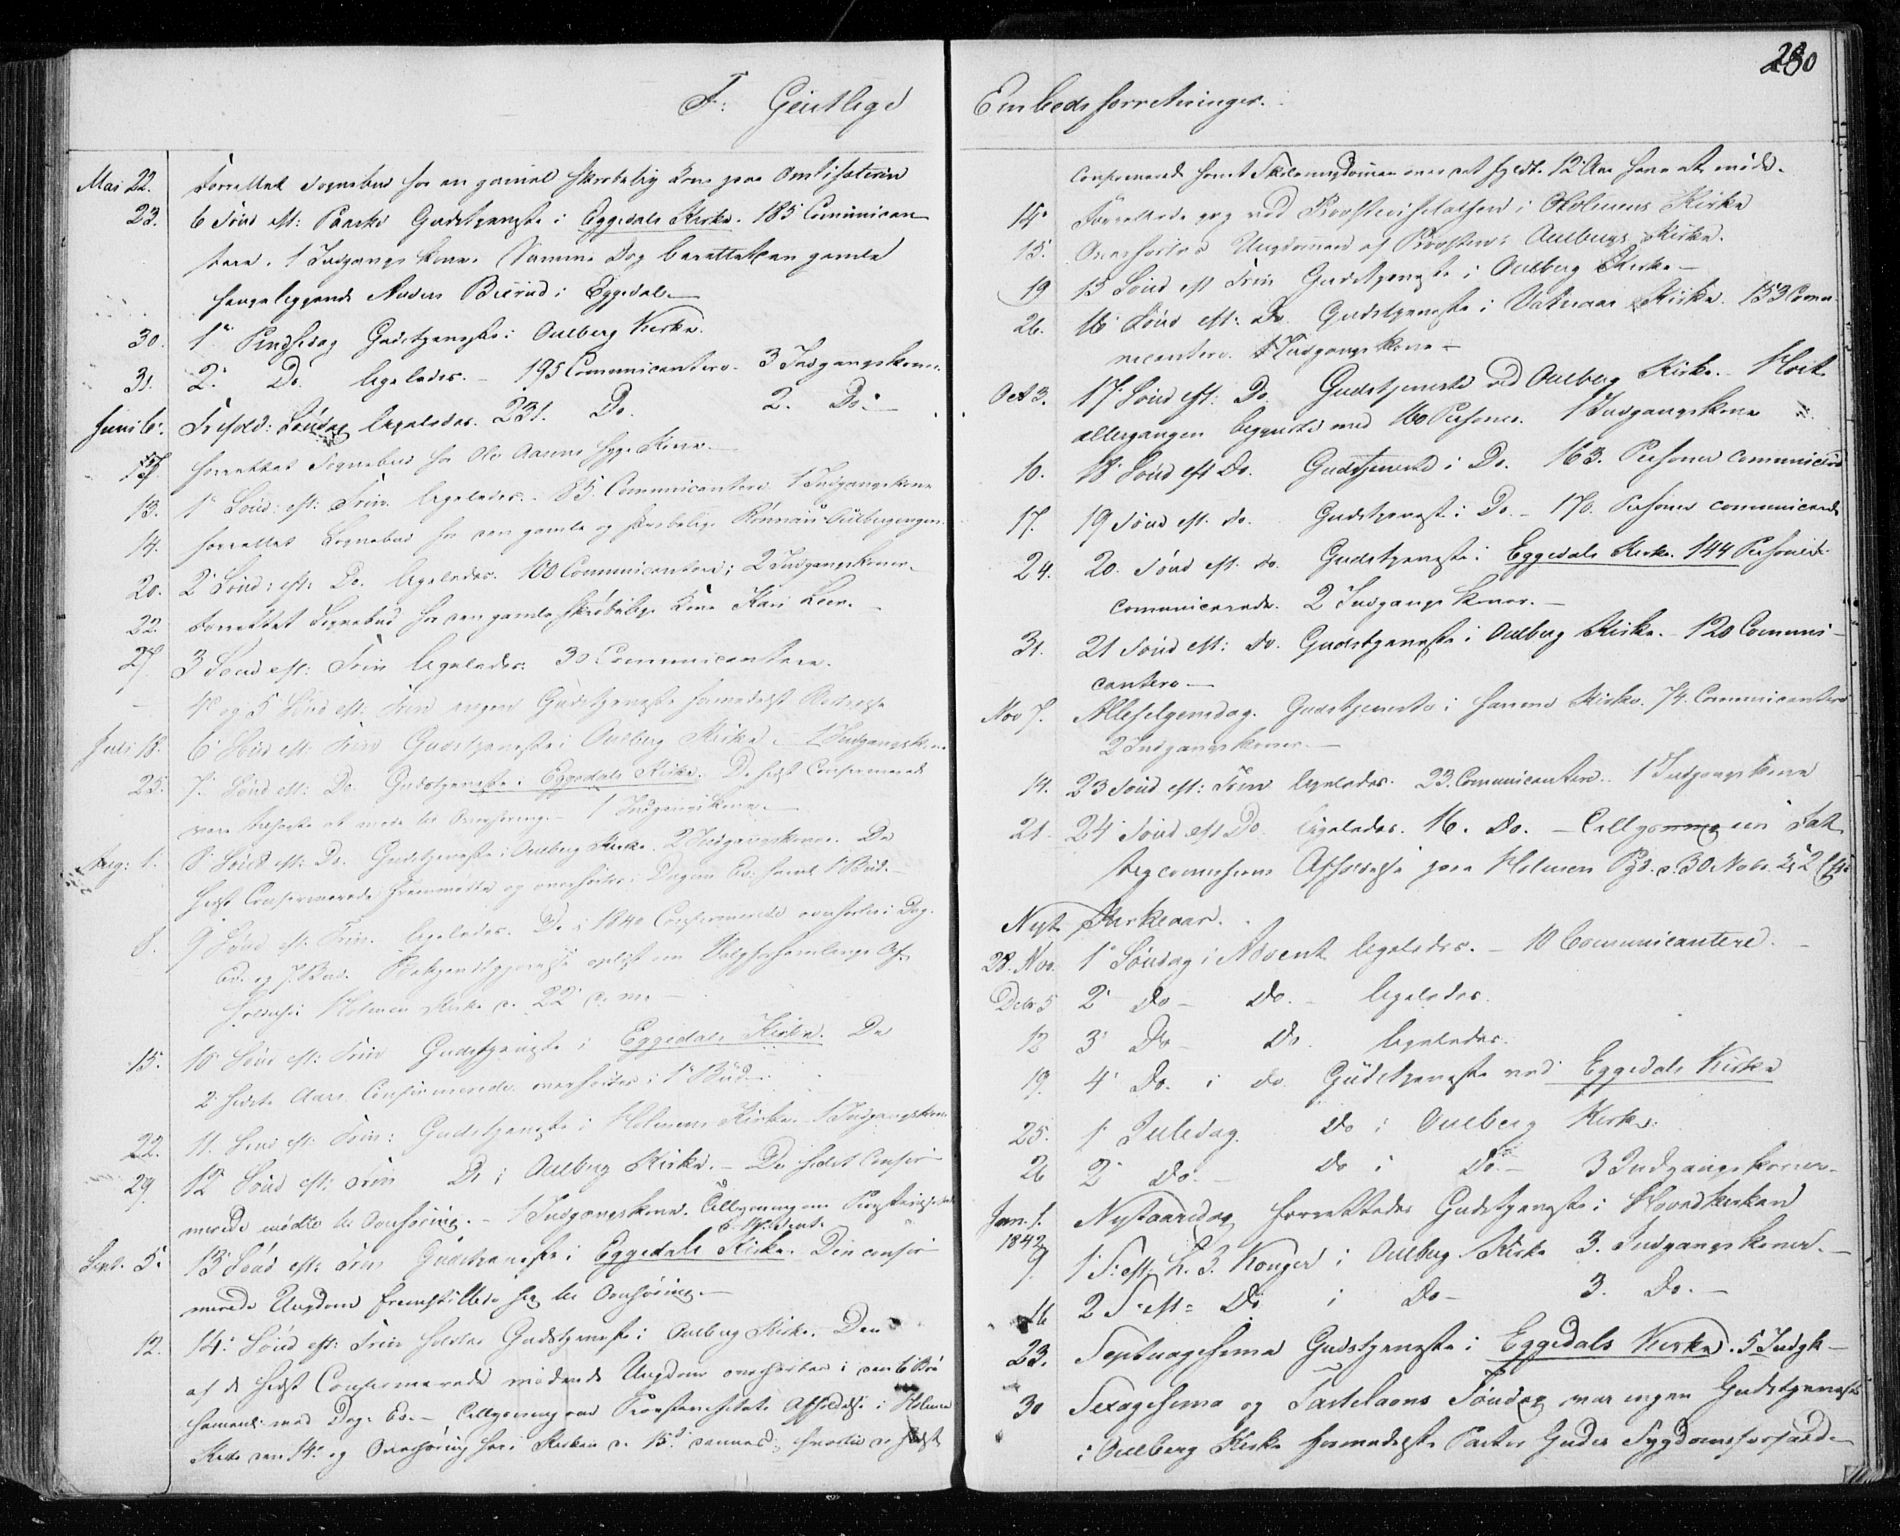 230
F: Geistlige Embedsforretninger.
Mai 22. Forrettet Sognebud for en gammel skrøbelig Kone paa
23. 6 Sønd eft: Paaske Gudstjeneste i Eggedals Kirke. 185 Communican-
tere. 1 Indgangskone. Samme Dag berettet en gamle
sengeliggende Anders Bierud i Eggedal.
30. 1ste Pindsedag Gudstjeneste i Aulberg Kirke.
31. 2. Do. ligeledes. - 195 Communicantere. 3 Indgangskoner.
Juni 6. Trefold: Søndag ligeledes. 231. Do. 2. Do. -
forrettet Sognebud for Ole Aasens syge Kone.
13. 1 Sønd: eft: Trin. ligeledes. 85 Communicantere 1 Indgangskone
14. forrettet Sognebud for den gamle og skrøbelige
20. 2 Sønd: eft: Do. ligeledes. 100 Communicantere; 2 Indgangskoner.
22. Forrettet Sognebud for den gamle skrøbelige Kone Kari
27. 3 Sønd eft: Trin ligeledes. 30 Communicantere.
- 4de og 5 Sønd eft: Trin ingen Gudstjeneste formedelst
Juli 18. 6 Sønd eft: Trin Gudstjeneste i Aulberg Kirke. - 1 Indgangskone
25. 7. Sønd eft: Do. Gudstjeneste i Eggedals Kirke. De sidst Confirmerede
vare tilsagte at møde til Overhøring. - 1 Indgangskone. -
Aug: 1. 8 Sønd eft: Do. Gudstjeneste i Aulberg Kirke. 2 Indgangskoner. De
sidst Confirmerede fremmødte og overhørtes. Dagens Ev: samt 1 Bud.
8. 9 Sønd eft: Trin. ligeledes. De i 1840 Confirmerede overhørtes i Dag.
Ev. og 7. Bud. oplyst om Valgforsamlings Af-
holdelse i Holmen Kirke d. 22 d. m. -
15. 10 Sønd eft: Trin Gudstjeneste i Eggedals Kirke. De
2 sidste Aars Confirmerede overhørtes i 1ste Bud.
22. 11. Sønd eft: Trin: Gudstjeneste i Holmens Kirke. 1 Indgangskone
29. 12 Sønd eft: Trin Do i Aulberg Kirke. - De sidst Confir-
merede mødte til Overhøring. - 1 Indgangskone. Tillysning om
Sept. 5. 13 Sønd eft: Trin Gudstjeneste i Eggedals Kirke. Den confir-
merede Ungdom fremstillede sig til Overhøring. -
12. 14. Sønd eft: Trin holdtes Gudstjeneste i Aulberg Kirke. Den
af de sidst Confirmerede mødende Ungdom overhørtes i den 6 Bøn
samt med Dag: Ev. - Tillysning om Afholdelse i Holmen
Kirke den 14. og Overhøring her i Kirken d. 15. hvortil de sidst
confirmerede samt Skoleungdommen over et fyldt 12 Aar have at møde.
14. Forrettede jeg ved Provstevisitatsen i Holmens Kirke
15. Overhørtes Ungdommen af Provsten i Aulbergs Kirke.
19 15 Sønd eft Trin Gudstjeneste i Aulberg Kirke -
26. 16 Sønd eft: Do Gudstjeneste i Vatnaas Kirke. 153 Commu-
nicantere. 1 Indgangskone -
Oct 3. 17 Sønd eft: Do. Gudstjeneste ved Aulberg Kirke. - Høst-
altergangen begyndte med 160 Personer. 1 Indgangskone
10. 18 Sønd eft Do. Gudstjeneste i Do. 163. Personer communicerede
17. 19 Sønd eft. do. Gudstjeneste i Do. - 170. Personer communicerede
24. 20. Sønd eft. do. Gudstjeneste i Eggedals Kirke. 144 Personer
communicerede. 2 Indgangskoner. -
31. 21 Sønd eft: do. Gudstjeneste i Aulberg Kirke. - 120 Communi-
cantere -
Nov 7. Allehelgensdag. Gudstjeneste i samme Kirke. 74. Communicantere
2 Indgangskoner. -
14. 23 Sønd eft: Trin ligeledes. 23. Communicantere. 1 Indgangskone
21. 24 Sønd eft Do. ligeledes. 16. do. - Tillysning om Fat-
tigcommissions Afholdelse paa Holmen Pgd. d. 30 Nobr.
Nyt Kirkeaar.
28. Nov. 1ste Søndag i Advent ligeledes. - 10 Communicantere. -
Debr 5 2 do - do. - ligeledes.
12 3 Do - Do. ligeledes.
19. 4 Do. i do. Gudstjeneste ved Eggedals Kirke
25. 1 Juledag. do i Aulberg Kirke.
26 2 do. - do i Do. - 3 Indgangskoner.
Jan. 1. Nytaarsdag forrettedes Gudstjeneste i Hovedkirken
1842
9. 1 S: eft. H. 3. Konger i Aulberg Kirke 3. Indgangskoner. -
16 2 S: eft: Do i Do - 3. Do. -
23. Septuagesima Gudstjeneste i Eggedals Kirke. 5 Indgk -
30 Sexagesima og Fastelavns Søndag var ingen Gudstjeneste
i Aulberg Kirke formedelst Pastor Gudes Sygdomsforfald -